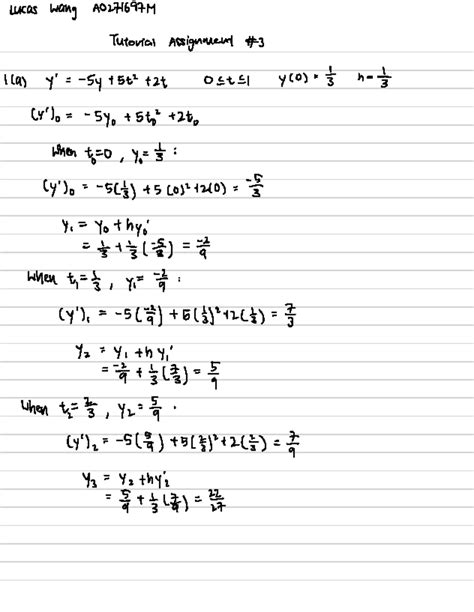 Lucas Wang A0271697M
Tutorial Assignment #3
1(a) y' = -5y + 5t² + 2t 0 ≤ t ≤ 1 y(0) = 1/3 h = 1/3
(y')₀ = -5y₀ + 5t₀² + 2t₀
When t₀=0, y₀ = 1/3 :
(y')₀ = -5(1/3) + 5(0)² + 2(0) = -5/3
y₁ = y₀ + hy₀'
= 1/3 + 1/3(-5/3) = -2/9
When t₁ = 1/3, y₁ = -2/9 :
(y')₁ = -5(-2/9) + 5(1/3)² + 2(1/3) = 7/3
y₂ = y₁ + hy₁'
= -2/9 + 1/3(7/3) = 5/9
When t₂ = 2/3, y₂ = 5/9 .
(y')₂ = -5(5/9) + 5(2/3)² + 2(2/3) = 7/9
y₃ = y₂ + hy₂'
= 5/9 + 1/3(7/9) = 22/27